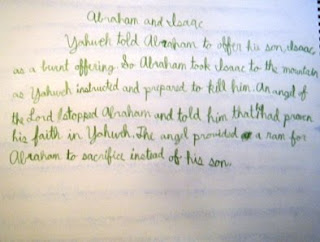 Abraham and Isaac
Yahweh told Abraham to offer his son, Isaac,
as a burnt offering. So Abraham took Isaac to the mountain
as Yahweh instructed and prepared to kill him. An angel of
the Lord stopped Abraham and told him that had proven
his faith in Yahweh. The angel provided a ram for
Abraham to sacrifice instead of his son.